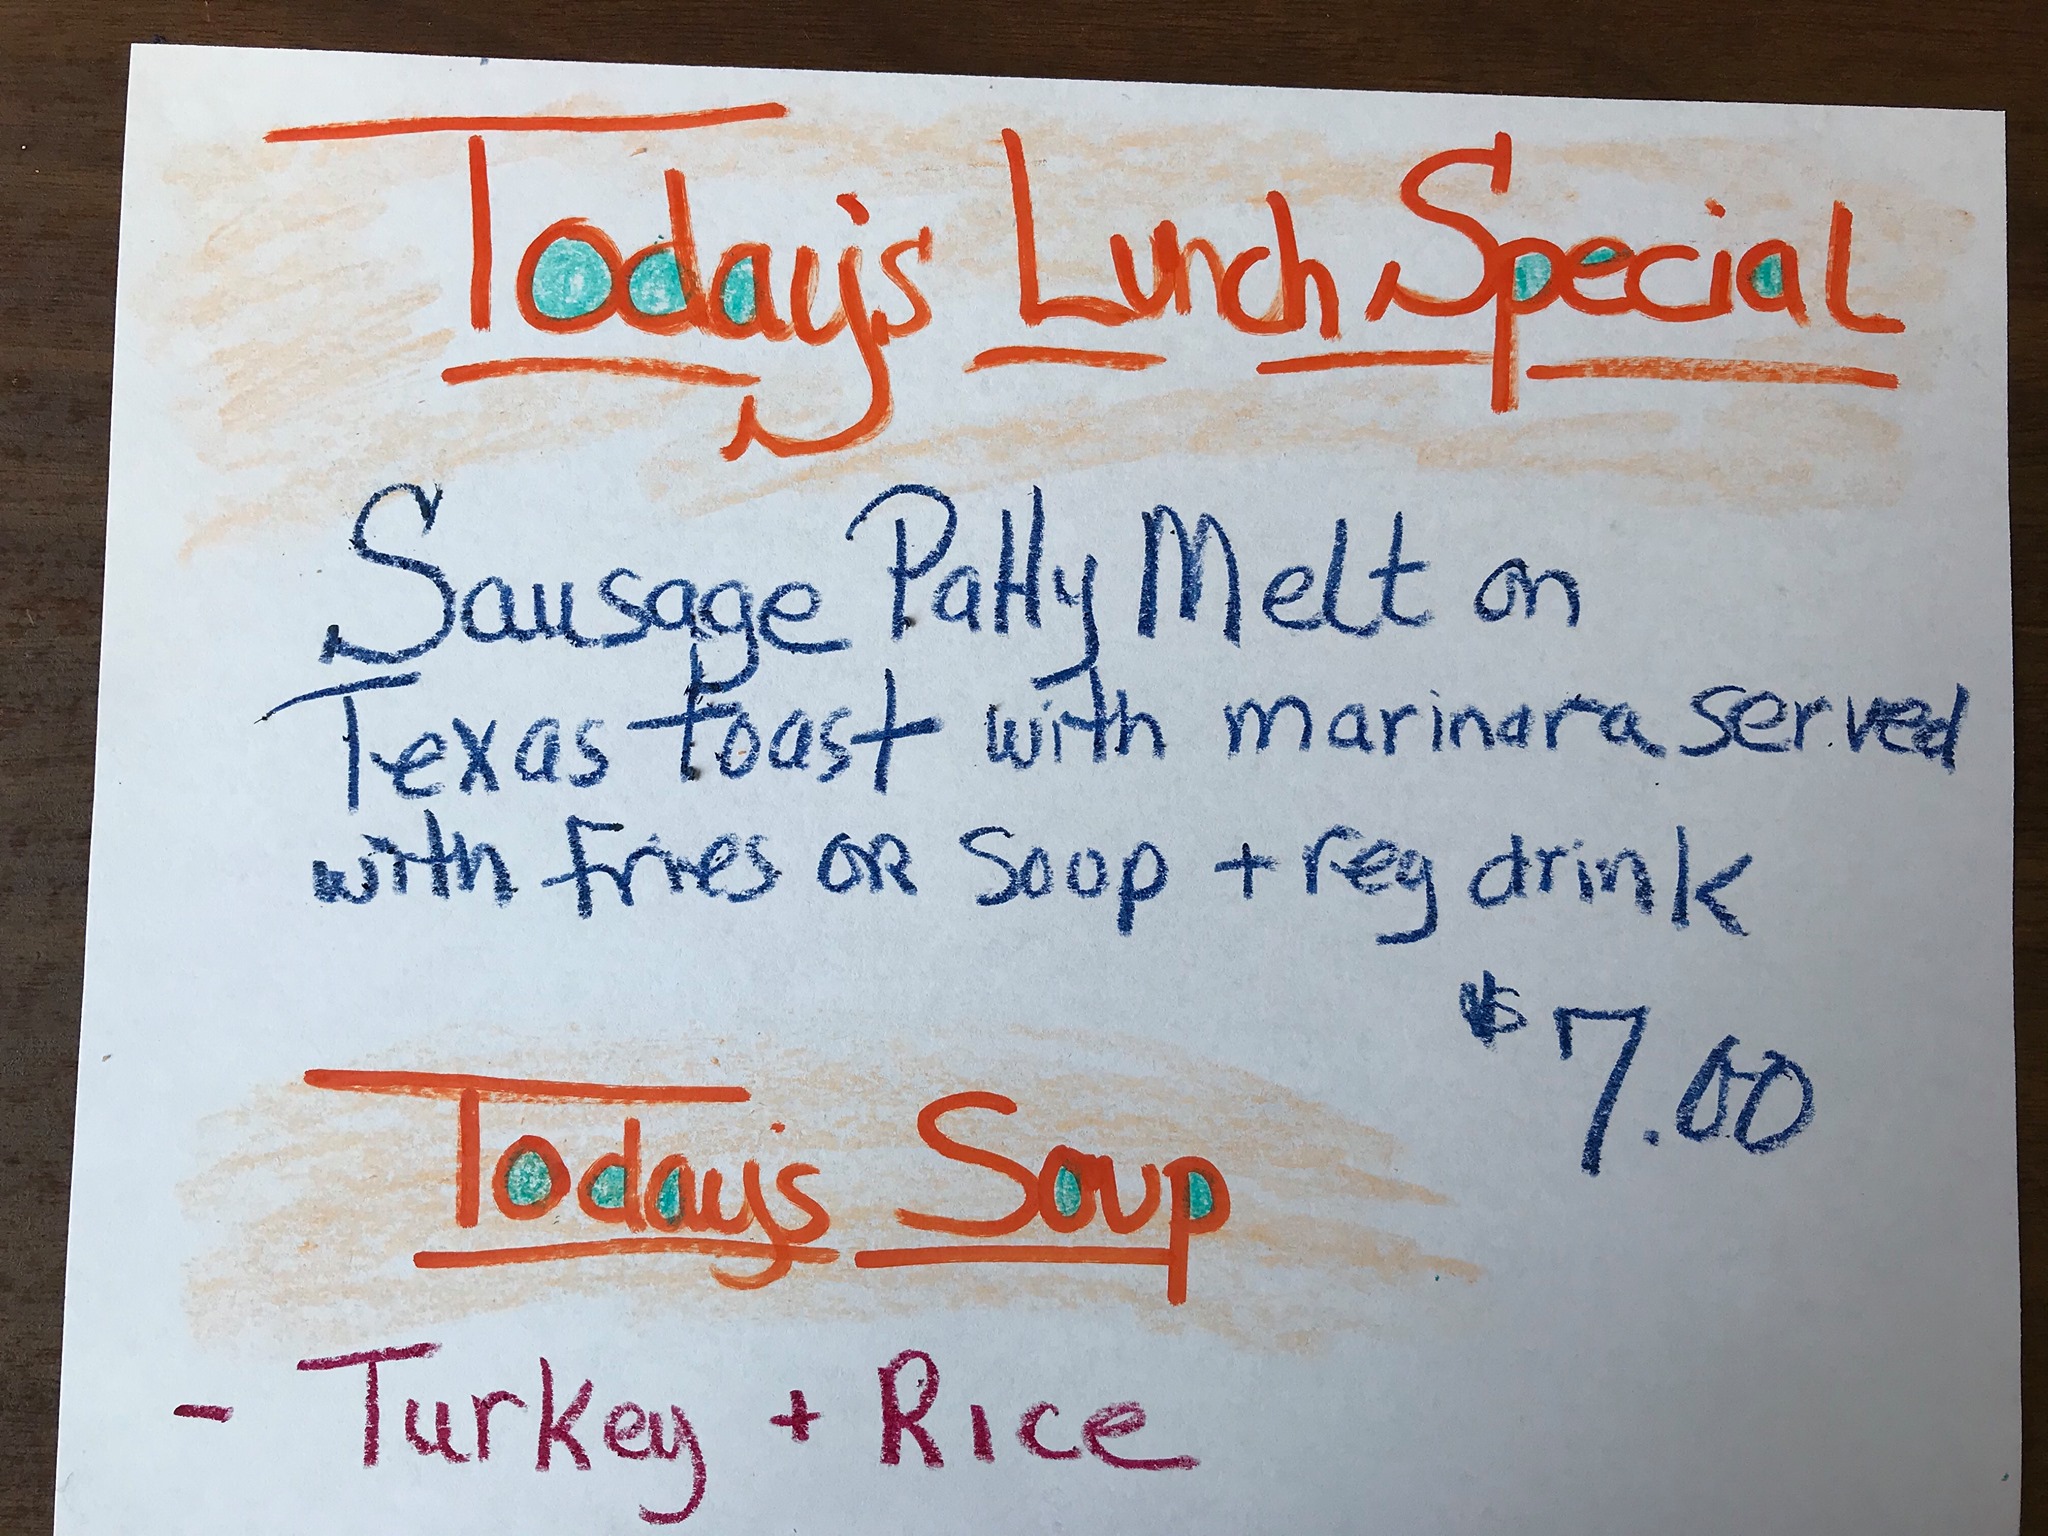 Today's Lunch Special
Sausage Patty Melt on
Texas toast with marinara served
with fries OR Soup + reg drink
$7.00
Today's Soup
- Turkey + Rice